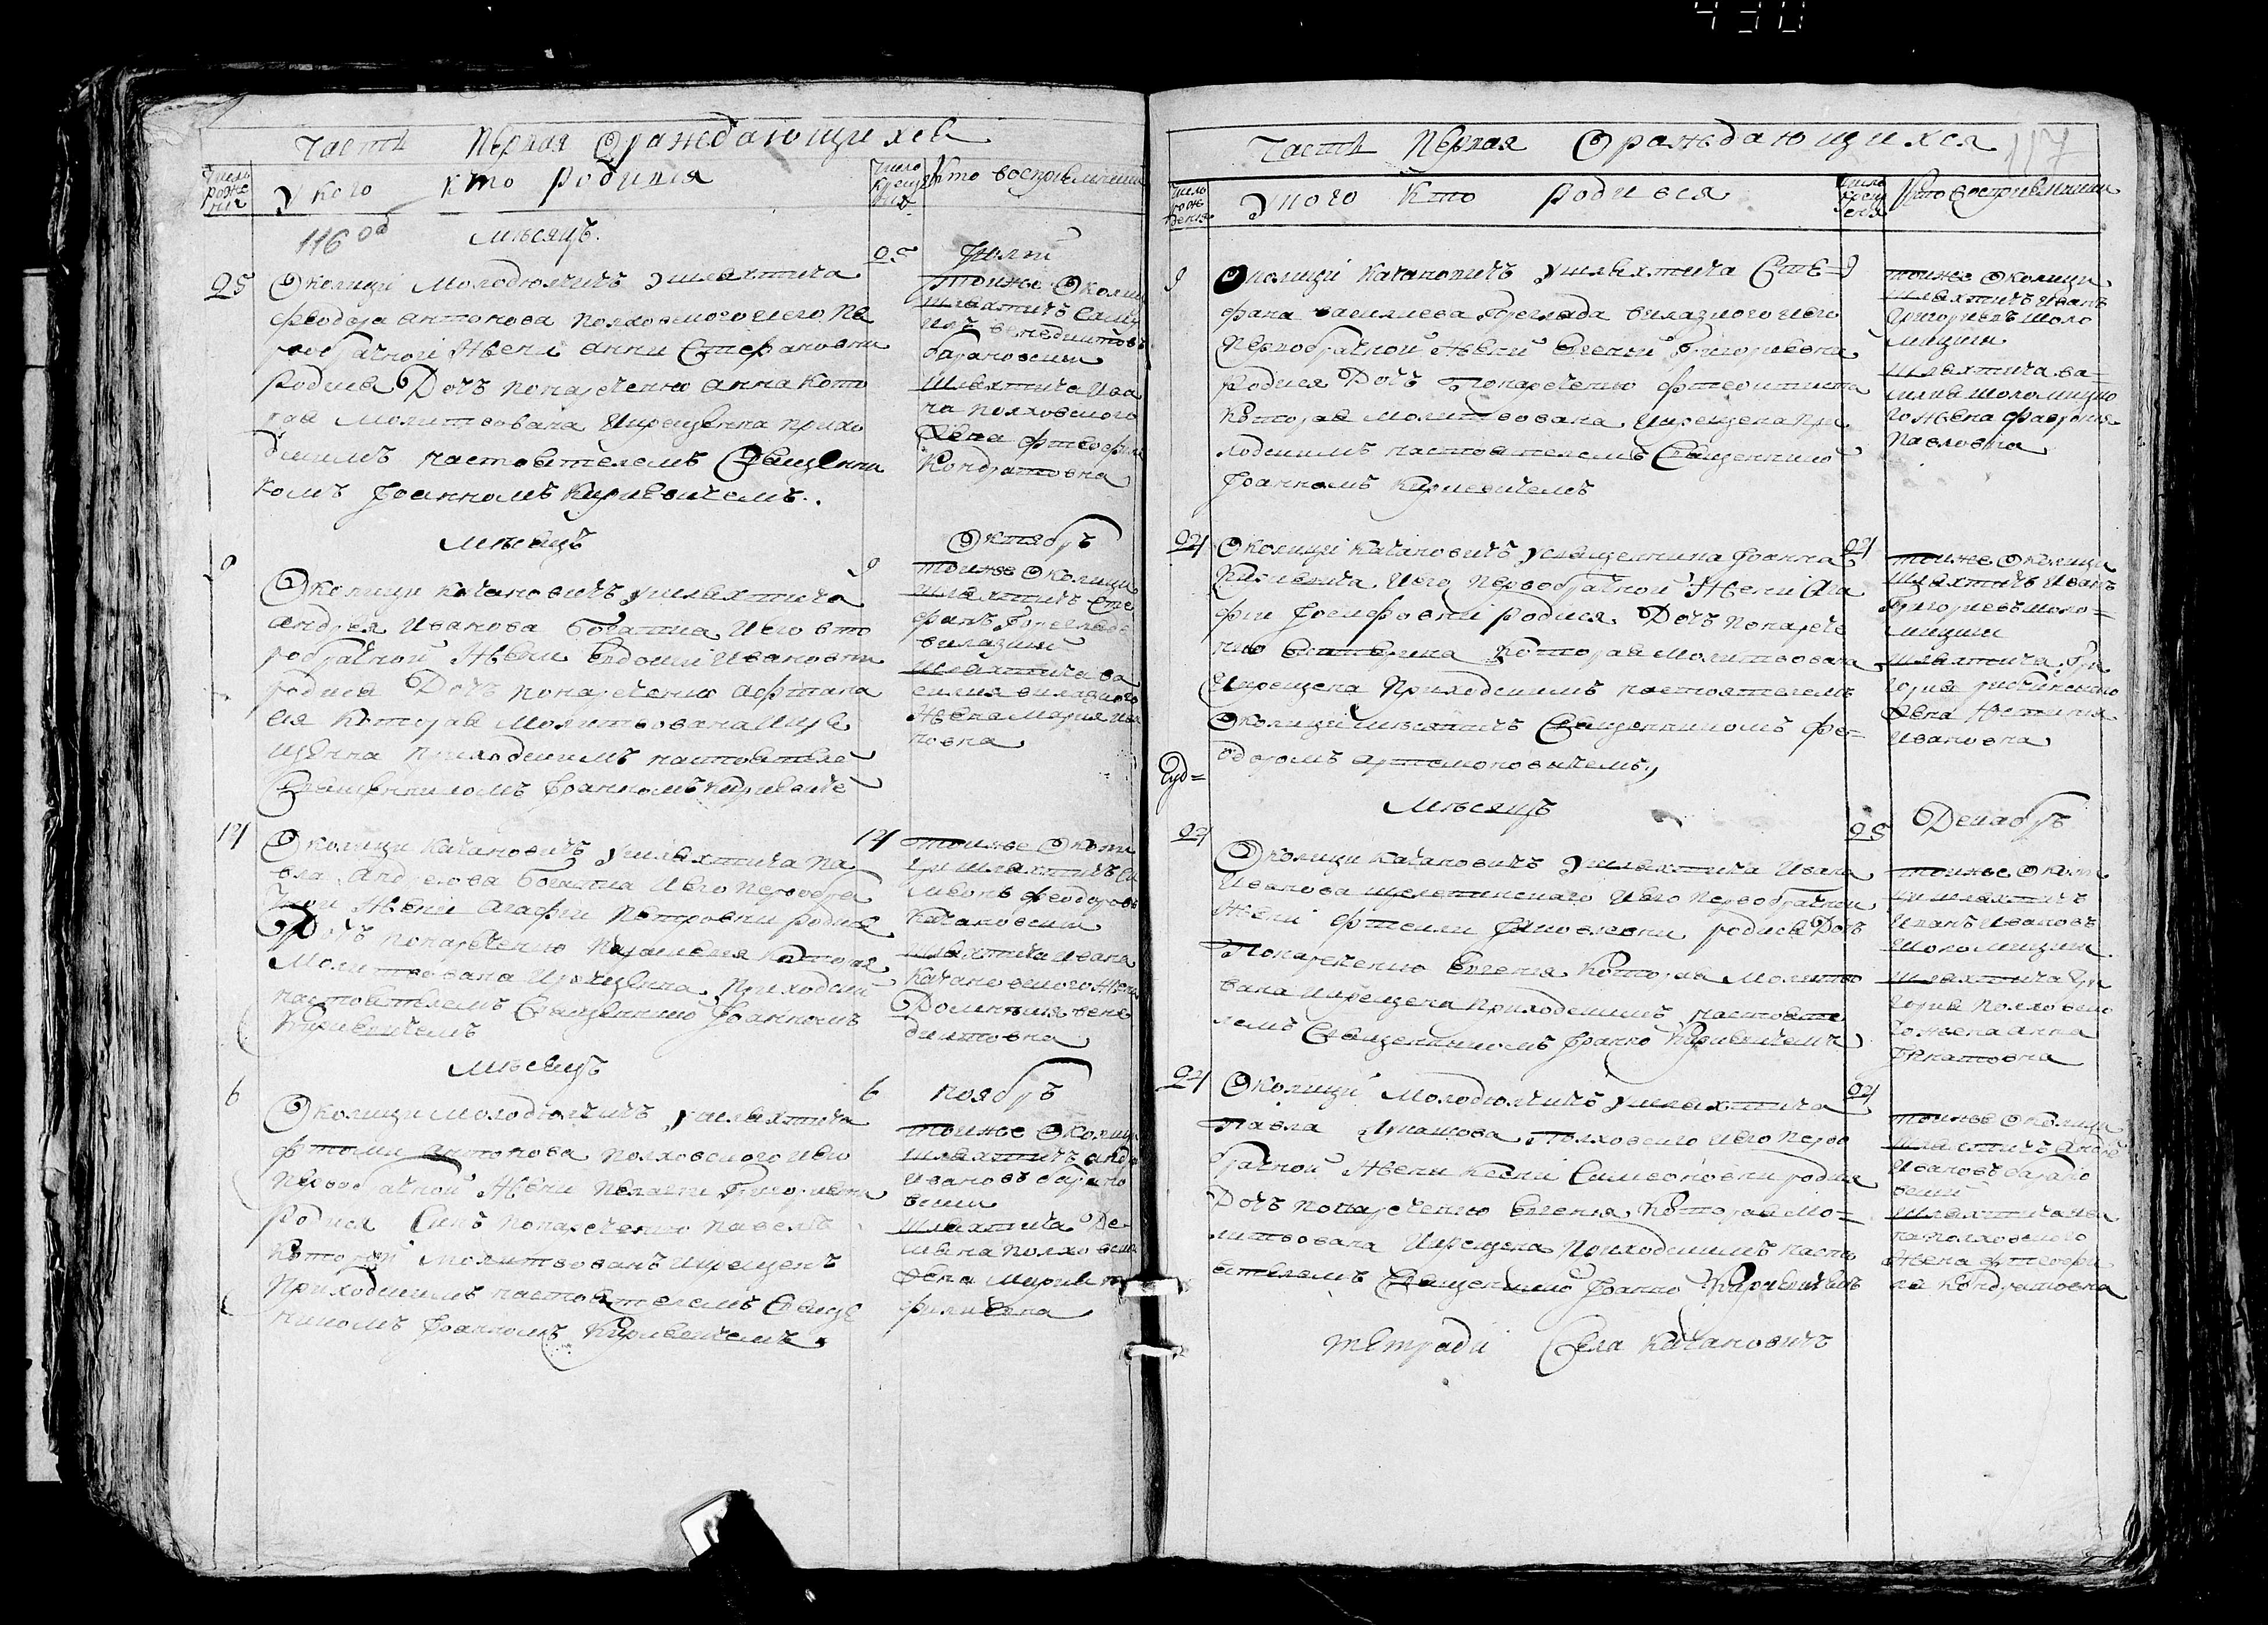 430
Часть Первая Ораждающихся
Число рожения
У кого кто родился
Число крещения
Кто восприемники
116 об
Месяцъ
Июлій
25
Околицы Молодковичъ у шляхтича
Феодора Антонова Полховского и его пе
рвобрачной жены Анни Стефановни
родися Дочъ по наречению Анна кото
рая молитвована и крещенна прихо
дскимъ настоятелемъ Священни
комъ Иоанномъ Киркевичемъ
25
тоижъ Околици
шляхтичъ
Бенедиктовъ
барановский
шляхтича Ива
на полховского
жена фтеофила
Кондратовна
Месяцъ
Октябръ
9
Околици Качановичъ у шляхтича
Андрея Иванова Богатка и его вто
робрачной жени Евдокии Ивановни
родися Дочъ по наречению Афтана
сия которая молитвована и кре
щенна приходскимъ настоятеле
Священникомъ Иоанномъ Киркевиче
9
тоижъ Околици
шляхтичъ Сте
фанъ
вилазкий
шляхтича ва
силия вилазкого
жена Мария Ива
новна
14
Околици Качановичъ у шляхтича Па
вла Андреева Богатка и его первобра
чной жени Агафии Петровни родися
Дочъ по наречению которая
молитвована и крещенна приходски
настоятелемъ Священнико Иоанномъ
Киркевичемъ
14
тоижъ Околи
ци шляхтичъ Си
меонъ Феодоровъ
Качановский
шляхтича Ивана
Качановского жена
Доминикия Бене
диктовна
Месяцъ
ноябръ
6
Околици Молодковичъ у шляхтича
Фтоми Антонова Полховского и его
первобрачной жени Пелагеи Григориевни
родися Синъ по наречению Павелъ
которий молитвованъ и крещенъ
приходскимъ настоятелемъ Священ
никомъ Иоанномъ Киркевичемъ
6
тоижъ Околици
шляхтичъ Андре
Ивановъ барано
вский
шляхтича Де
мяна полховско
жена Мария
филиевна
Часть Первая Ораждающихся
117
Число рождения
У кого кто родися
Число крещения
Кто восприемники
9
Околиці Качановичъ у шляхтича Сте=
фана Василиева вилазкого и его
первобрачной жени Евгении Григориевни
родися Дочъ по наречению фтеоктиста
которая молитвована и крещена при
ходскимъ настоятелемъ Священнико
Иоанномъ Киркевичемъ
9
тоижъ Околици
шляхтичъ Иванъ
Григориевъ Шоло
мицкий
шляхтича ва=
силия шоломицко
го жена Феврония
Павловна
24
Околиці Качановичъ у священника Иоанна
Киркевича и его первобрачной жени Ага
фии Иосифовни родися Дочъ по нарече
нию Екатерина которая молитвована
и крещена приходскимъ настоятелемъ
Околици Священникомъ Фе=
одоромъ Артемоновичемъ
24
тоижъ Околици
шляхтичъ Иванъ
Григориевъ Шоло=
мицкий
шляхтича Гри
гория
жена Иустиния
Ивановна
Месяцъ
Декабръ
24
Околици Качановичъ у шляхтича Ивана
Иванова и его первобрачной
жени фтекли Яковлевни родися Дочъ
по наречению Евгения которая молитво
вана и крещена приходскимъ настояте
лемъ Священникомъ Иоанно Киркевичемъ
25
тоижъ Околи
ци шляхтичъ
Иванъ Ивановъ
Шоломицкий
шляхтича Гри
гория Полховско
го жена Анна
Игнатовна
24
Околиці Молодковичъ у шляхтича
Павла Полховского и его перво
брачной жени Ксении Симеоновни родися
Дочъ по наречению Евгения которая мо=
литвована и крещена приходскимъ насто
ятелемъ Священнико Иоанно Киркевичемъ
24
тоижъ Околици
шляхтичъ Андре
Ивановъ барано
вский
шляхтича Ива
на полховского
жена фтеофи
ла Кондратовна
тетради Села Качановичъ